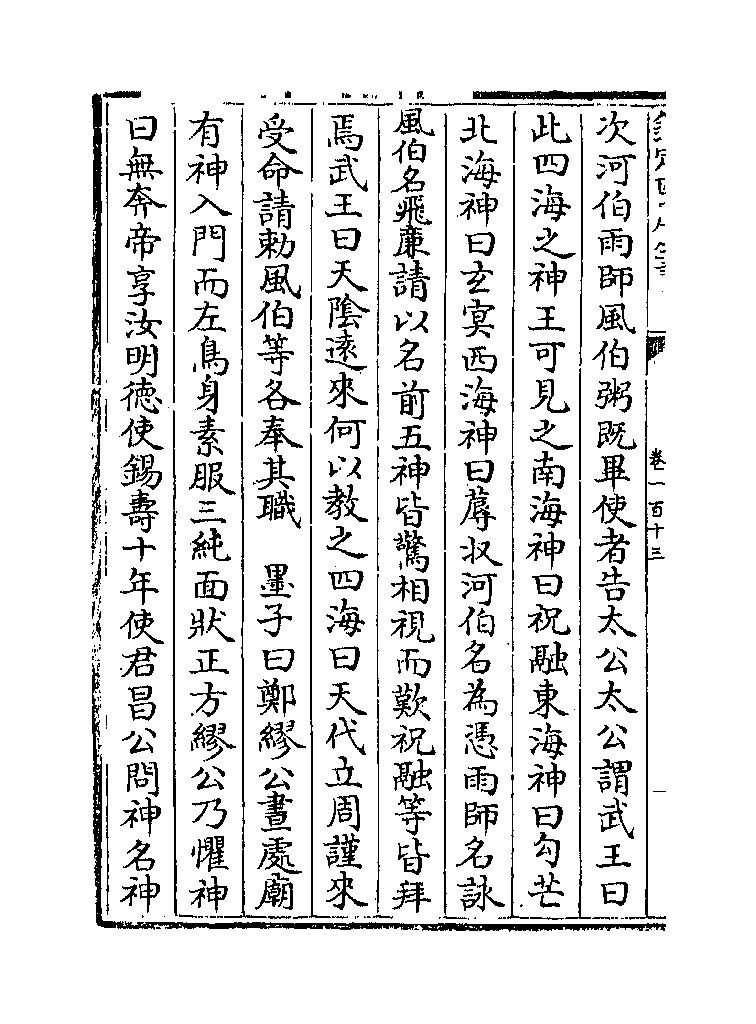 次河伯雨師風伯粥既畢使者告太公太公謂武王曰
此四海之神王可見之南海神曰祝融東海神曰勾芒
北海神曰玄㝠西海神曰蓐収河伯名為憑雨師名詠
風伯名飛廉請以名前五神皆驚相視而歎祝融等皆拜
焉武王曰天隂逺來何以教之四海曰天代立周謹來
受命請勅風伯等各奉其職　墨子曰鄭繆公晝處廟
有神入門而左鳥身素服三純面狀正方繆公乃懼神
曰無奔帝享汝明徳使錫壽十年使君昌公問神名神
卷一百十三